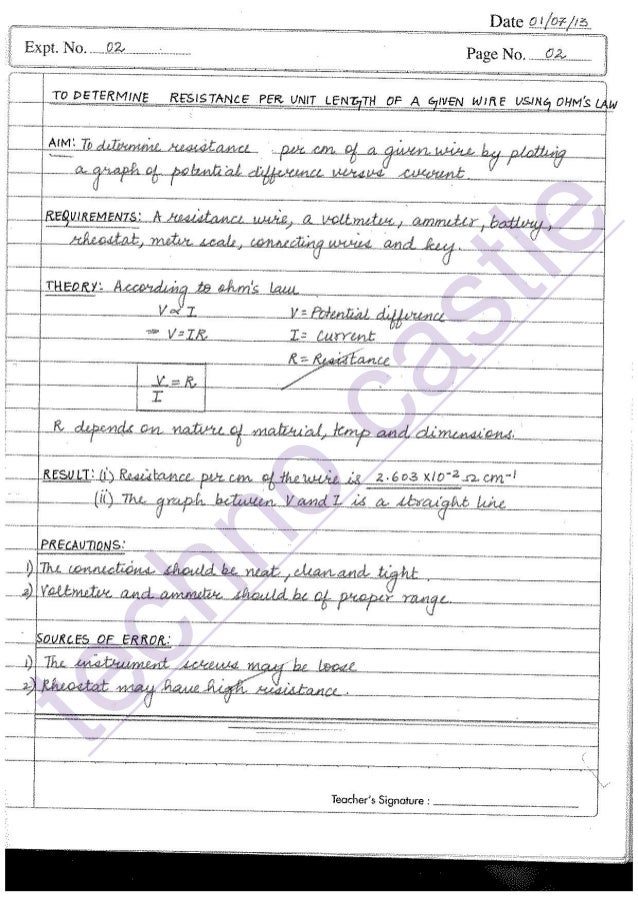 Date 01/07/13
Expt. No. 02
Page No. 02
TO DETERMINE RESISTANCE PER UNIT LENGTH OF A GIVEN WIRE USING OHM'S LAW
AIM: To determine resistance per cm of a given wire by plotting
a graph of potential difference versus current.
REQUIREMENTS: A resistance wire, a voltmeter, ammeter, battery,
rheostat, meter scale, connecting wires and key.
THEORY: According to ohm's law
V ∝ I V = Potential difference
⇒ V = IR I = Current
R = Resistance
V/I = R
R depends on nature of material, temp and dimensions.
RESULT: (i) Resistance per cm of the wire is 2.603 X10⁻² Ω cm⁻¹
(ii) The graph between V and I is a straight line
PRECAUTIONS:
1) The connections should be neat, clean and tight.
2) Voltmeter and ammeter should be of proper range.
SOURCES OF ERROR:
1) The instrument screws may be loose
2) Rheostat may have high resistance.
Teacher's Signature :
techno castle